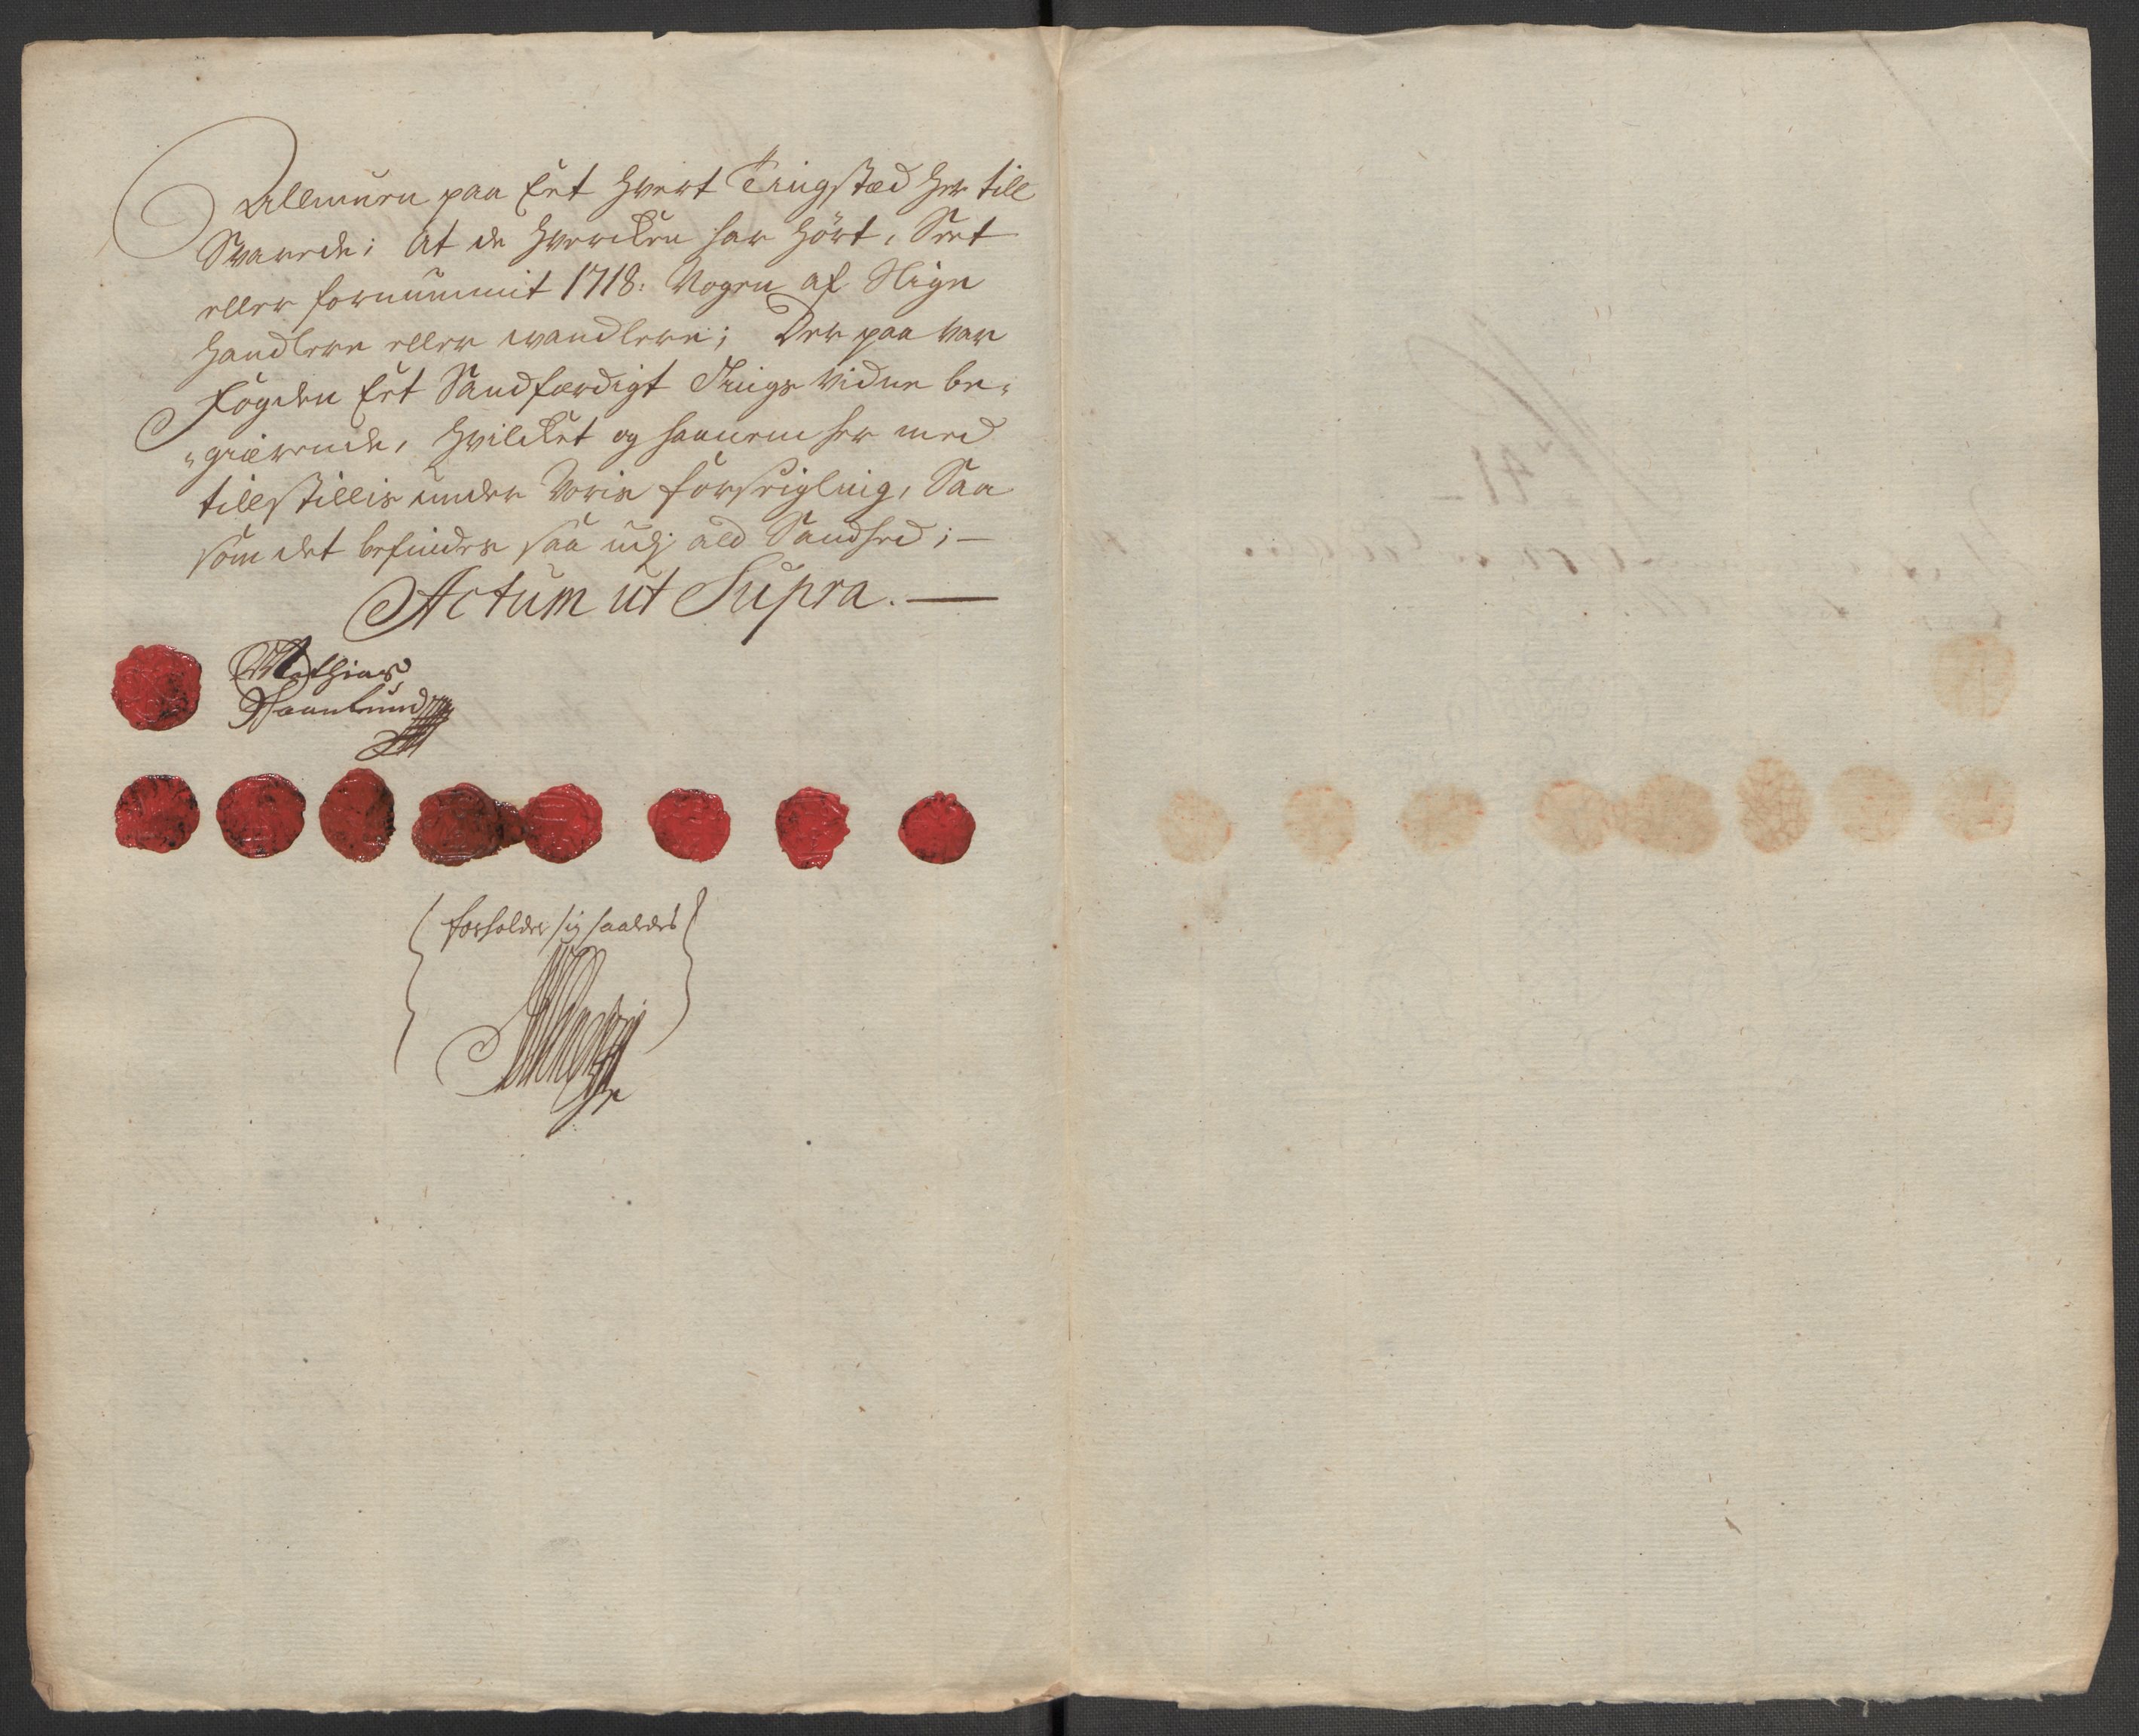 Allmuen paa Eet hvert Tingstæd her till
Svarede; At de hvercken har hört, Seet
eller fornummit 1718: Nogen af Slige
handlere eller wandlere; Der paa var
Fogden Eet Sandfærdigt Tings Vidne be„
„giærende, hvilcket og hannem her med
tillstillis under Voris forseigling, Saa
som det befindes saa udj ald Sandhed; —
Actum ut Supra. —
Mathias
forholder sig saaledes
41